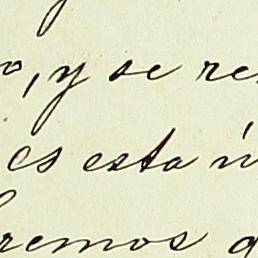 o, y se re
es esta ú
remos